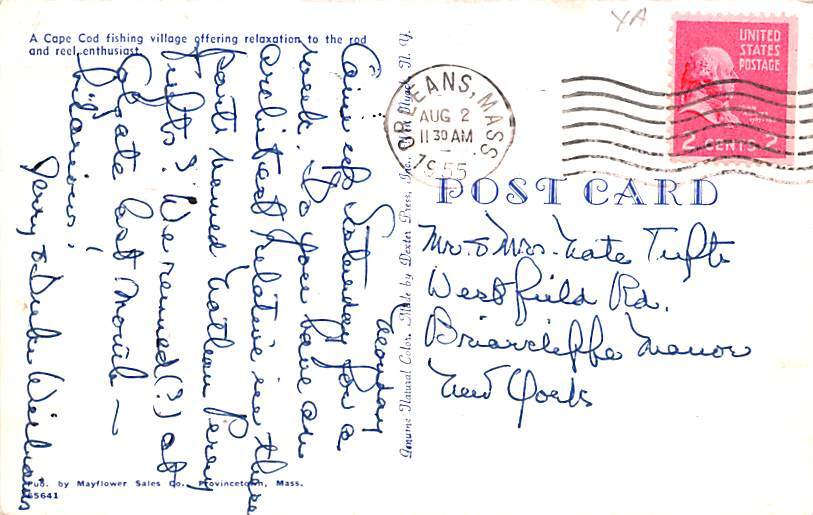 A Cape Cod fishing village offering relaxation to the rod
and reel enthusiast.
Monday
Came up Saturday for a
week. Do you have an
architect relative in these
parts named Nathan Perry
Tufts? We remed(?) at
Col gate last month —
Hilarious!
Jerry & Dude Williams
Pub. by Mayflower Sales Co. Provincetown, Mass.
65641
Genuine Natural Color. Made by Dexter Press, Inc., West Nyack, N. Y.
ORLEANS, MASS
AUG 2
11 30 AM
1955
UNITED
STATES
POSTAGE
2 CENTS 2
POST CARD
Mr. & Mrs. Nate Tufts
Westfield Rd.
Briarcliffe Manor
New York
YA